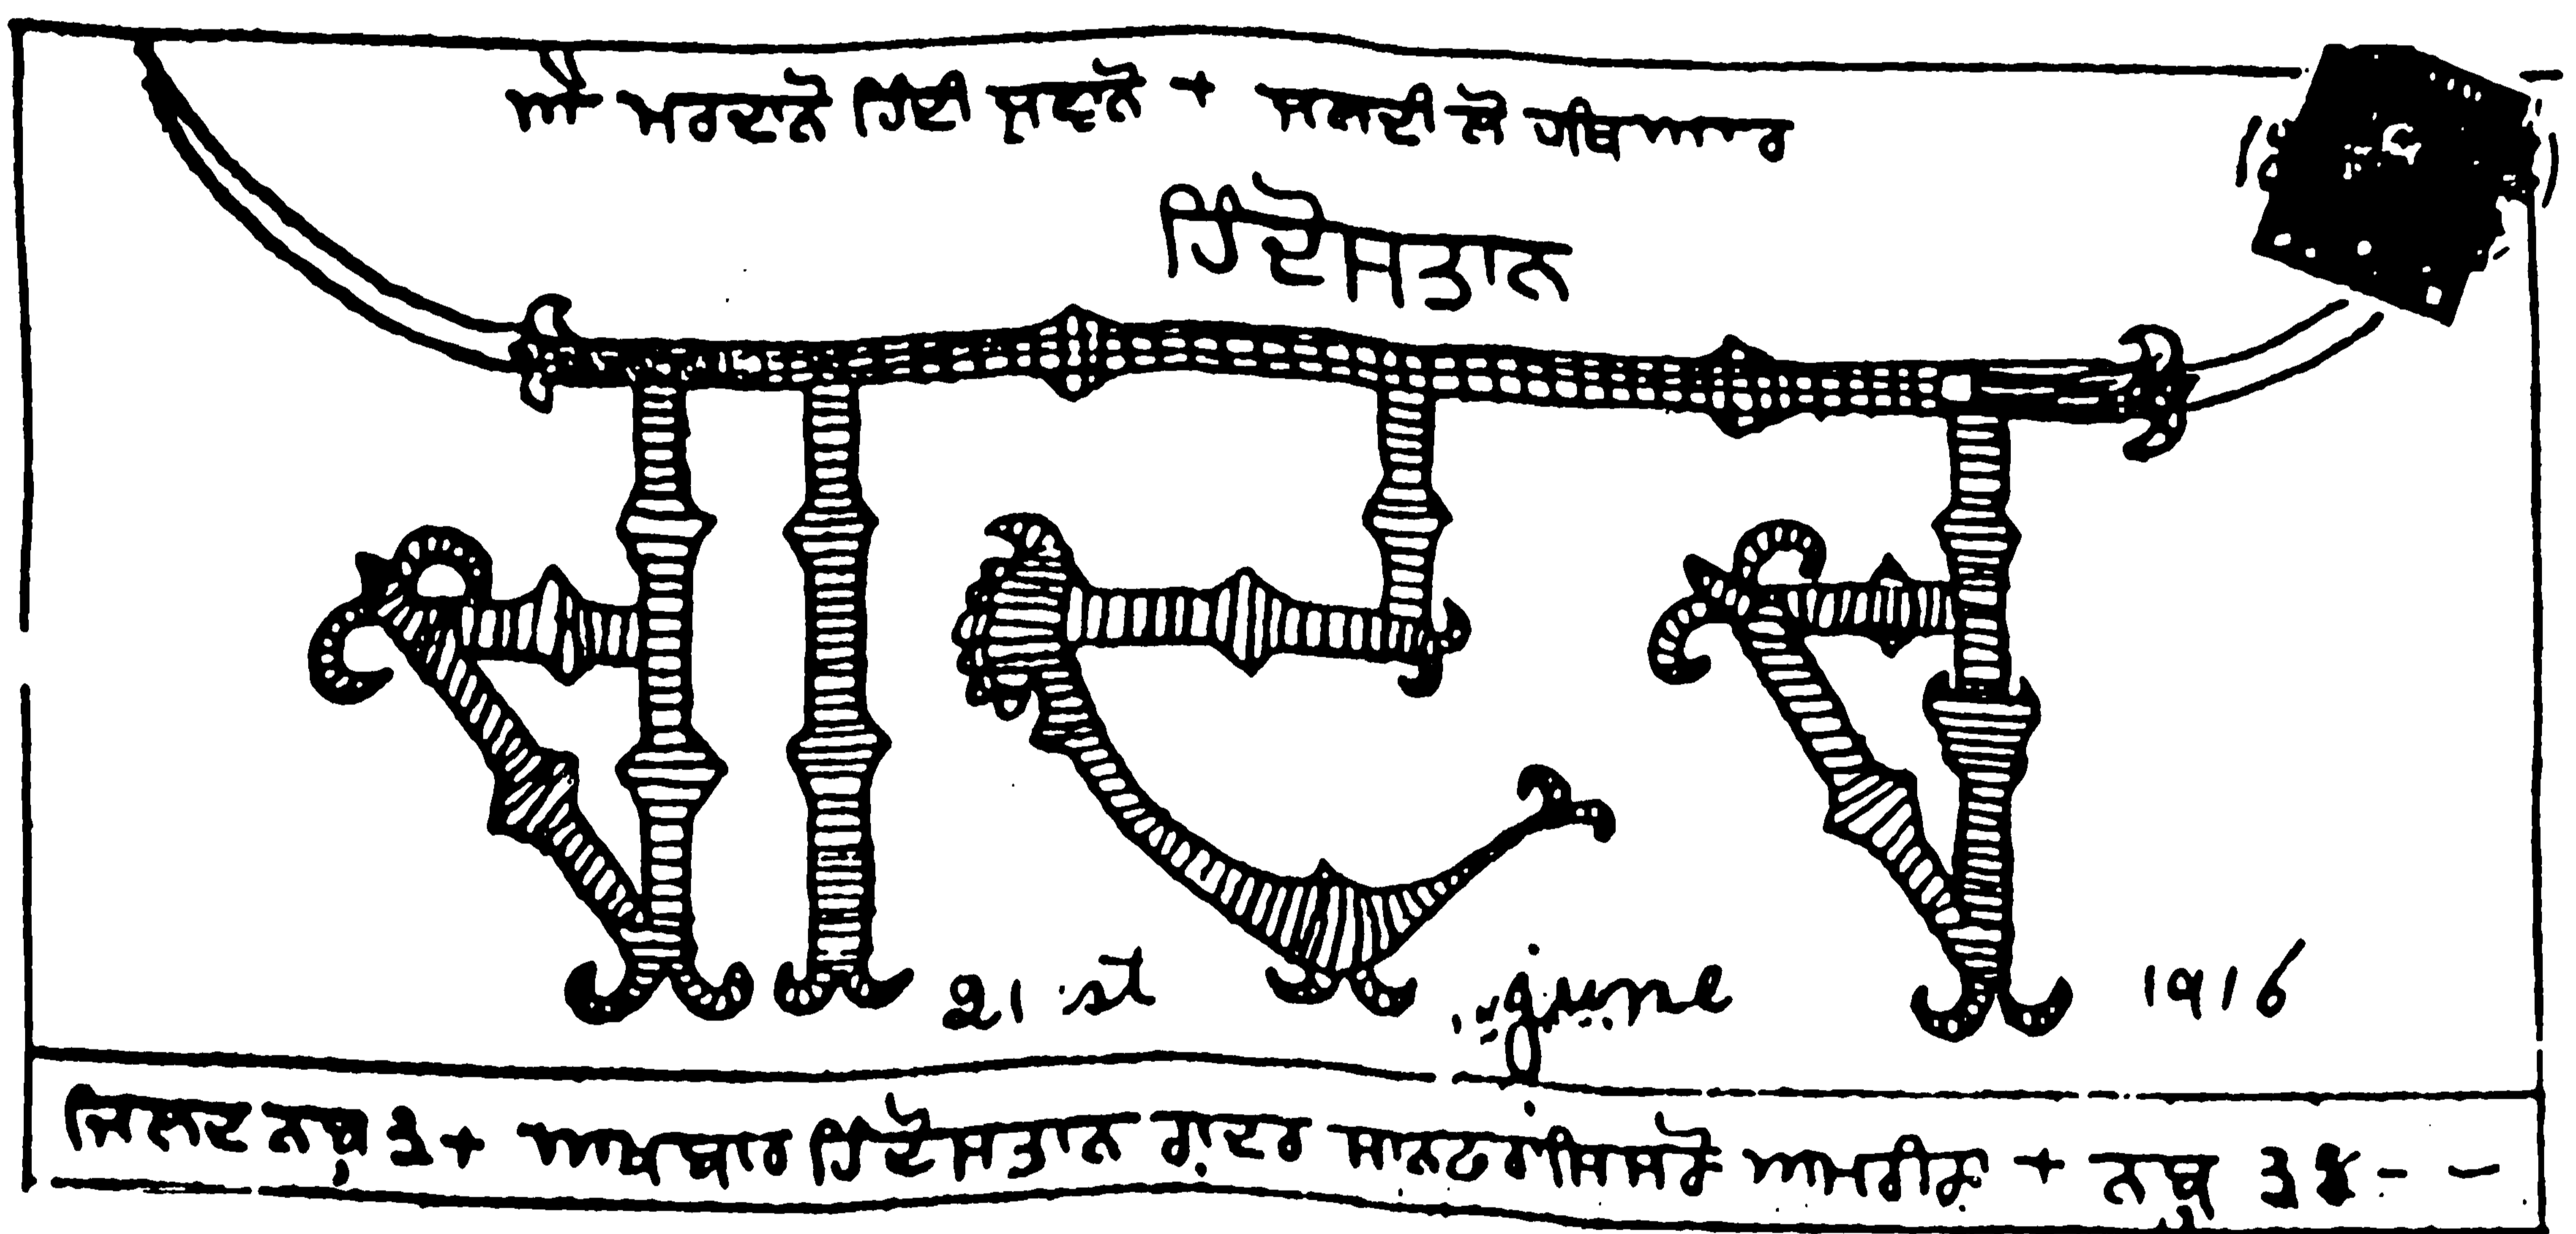 ਐ ਮਰਦਾਨੇ ਹਿੰਦੀ ਜੁਵਾਨੋ + ਜਲਦੀ ਲੋ ਹਥਿਆਰ
ਹਿੰਦੋਸਤਾਨ
ਗ਼ਦਰ
21 st june 1916
ਜਿਲਦ ਨੰਬ੍ਰ ੩ + ਅਖਬਾਰ ਹਿੰਦੋਸਤਾਨ ਗ਼ਦਰ ਸਾਨਫਰਾਂਸਿਸਕੋ ਅਮਰੀਕਾ + ਨੰਬ੍ਰ